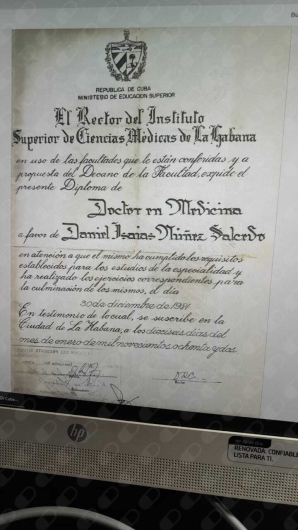 REPUBLICA DE CUBA
MINISTERIO DE EDUCACION SUPERIOR
El Rector del Instituto
Superior de Ciencias Médicas de La Habana
en uso de las facultades que le están conferidas y a
propuesta del Decano de la Facultad, expide el
presente Diploma de
Doctor en Medicina
a favor de Daniel Isaias Núñez Salcedo
en atención a que el mismo ha cumplido los requisitos
establecidos para los estudios de la especialidad y
ha realizado los ejercicios correspondientes para
la culminación de los mismos, el día
30 de diciembre de 1981
En testimonio de lo cual, se suscribe en la
Ciudad de La Habana, a los dieciseis días del
mes de enero de mil novecientos ochenta y dos
hp
RENOVADA, CONFIABLE
LISTA PARA TI.